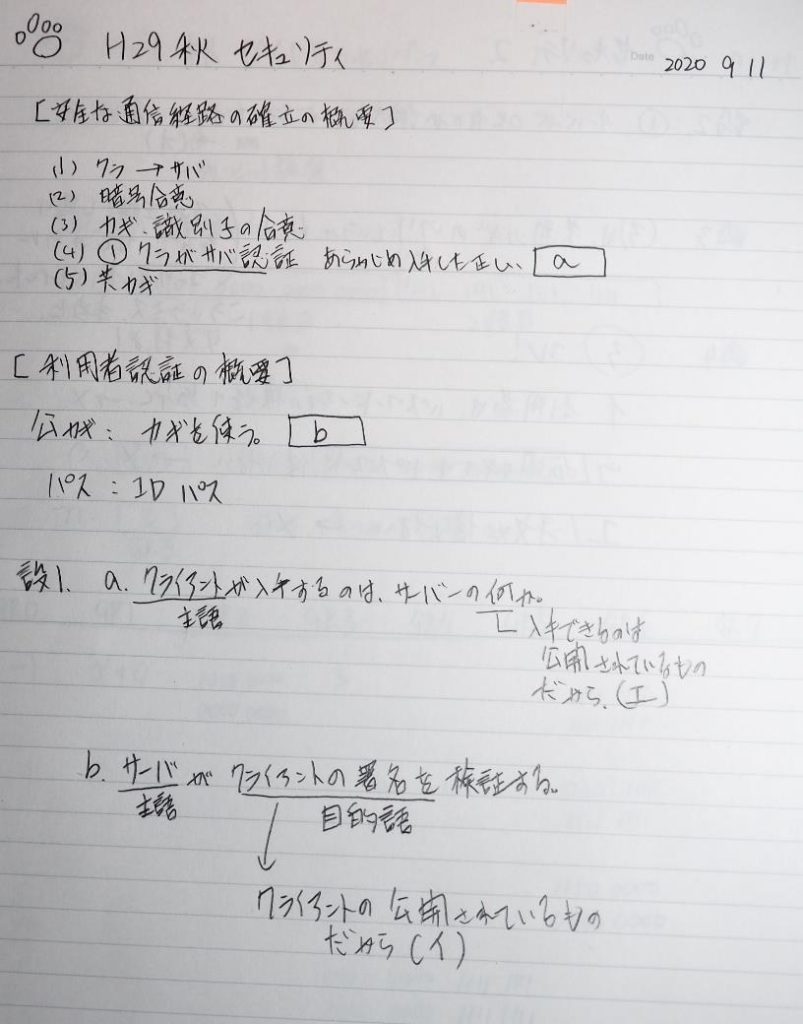 H29秋 セキュリティ
Date
2020 9 11
[安全な通信経路の確立の概要]
(1) クラ→サバ
(2) 暗号合意
(3) カギ、識別子の合意
(4) ① クラがサバ認証 あらかじめ入手した正しい a
(5) 共カギ
[利用者認証の概要]
公カギ: カギを使う。 b
パス : ID パス
設1. a. クライアントが入手するのは、サーバーの何か。
主語
入手できるのは
公開されているもの
だから、(エ)
b. サーバがクライアントの署名を検証する。
主語 目的語
クライアントの公開されているもの
だから(イ)